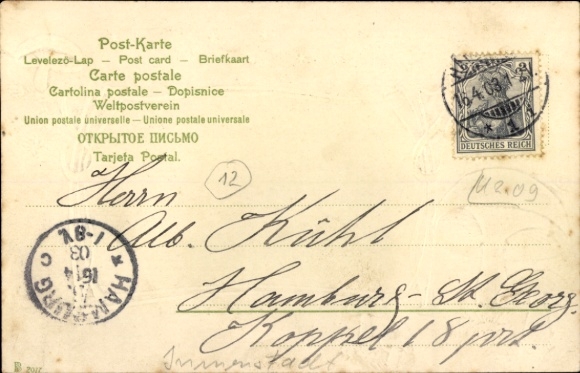 Post-Karte
Levelezö-Lap – Post card – Briefkaart
Carte postale
Cartolina postale – Dopisnice
Weltpostverein
Union postale universelle – Unione postale universale
ОТКРЫТОЕ ПИСЬМО
Tarjeta Postal.
16.4.03.
* 1 i
DEUTSCHES REICH
Herrn
12
Alb. Kühl
Hamburg - St. Georg.
Koppel 18 prt.
HAMBURG
03
* C
Immenstadt